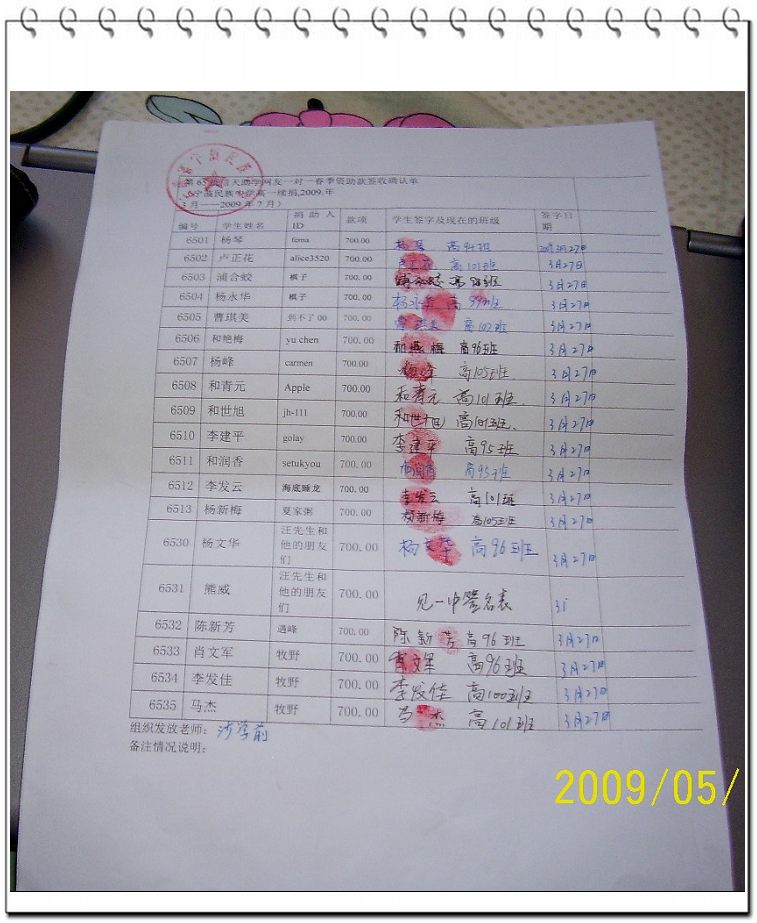 天助学网友一对一春季资助款签收确认单
宁蒗民族中学高一续捐,2009.年
3月——2009年7月)
编号 学生姓名 捐助人ID 款项 学生签字及现在的班级 签字日期
6501 杨琴 fema 700.00 杨琴 高94班 3月27日
6502 卢正花 alice3520 700.00 卢正花 高101班 3月27日
6503 浦合蛟 棋子 700.00 班 3月27日
6504 杨永华 棋子 700.00 杨永华 高 班 3月27日
6505 曹琪美 到不了00 700.00 曹琪美 高102班 3月27日
6506 和艳梅 yu chen 700.00 和燕梅 高96班 3月27日
6507 杨峰 carmen 700.00 杨峰 高105班 3月27日
6508 和青元 Apple 700.00 和青元 高101班. 3月27日
6509 和世旭 jh-111 700.00 和世旭 高101班. 3月27日
6510 李建平 golay 700.00 李建平 高95班 3月27日
6511 和润香 setukyou 700.00 和润香 高95班 3月27日
6512 李发云 海底睡龙 700.00 李发云 高101班 3月27日
6513 杨新梅 夏家粥 700.00 杨新梅 高105班 3月27日
6530 杨文华 汪先生和他的朋友们 700.00 杨文华 高96班 3月27日
6531 熊威 汪先生和他的朋友们 700.00 见一中签名表
6532 陈新芳 遇峰 700.00 陈新芳 高96班 3月27日
6533 肖文军 牧野 700.00 肖文军 高96班 3月27日
6534 李发佳 牧野 700.00 李发佳 高100班 3月27日
6535 马杰 牧野 700.00 马杰 高101班 3月27日
组织发放老师：
备注情况说明：
2009/05/